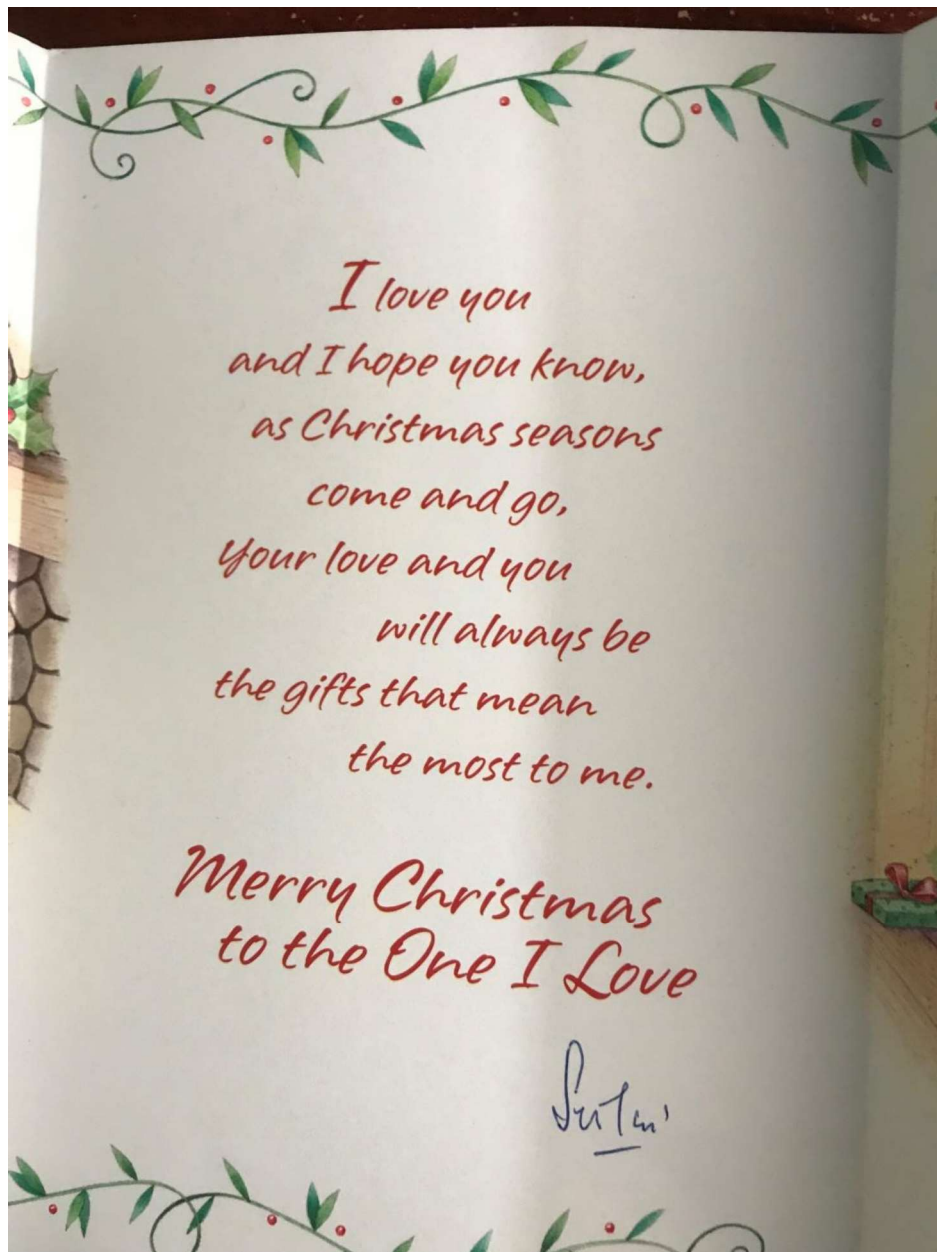 I love you
and I hope you know,
as Christmas seasons
come and go,
Your love and you
will always be
the gifts that mean
the most to me.
Merry Christmas
to the One I Love